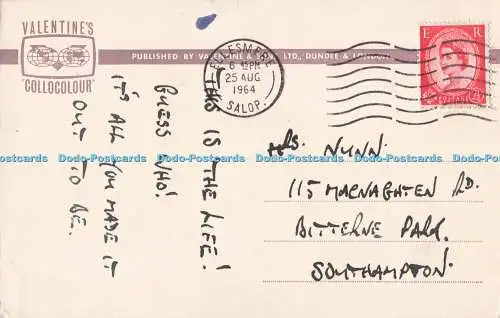 VALENTINE'S
"COLLOCOLOUR"
PUBLISHED BY VALENTINE & LTD., DUNDEE & LONDON
ELLESMERE
6 PM
25 AUG
1964
SALOP.
E R
THIS IS THE LIFE!
GUESS WHO!
IT'S ALL YOU MADE IT
OUT TO BE.
MRS. NUNN.
115 MACNAGHTEN RD.
BITTERNE PARK.
SOUTHAMPTON.
Dodo-Postcards Dodo-Postcards Dodo-Postcards Dodo-Postcards Dodo-Postcards Dodo-Postcards